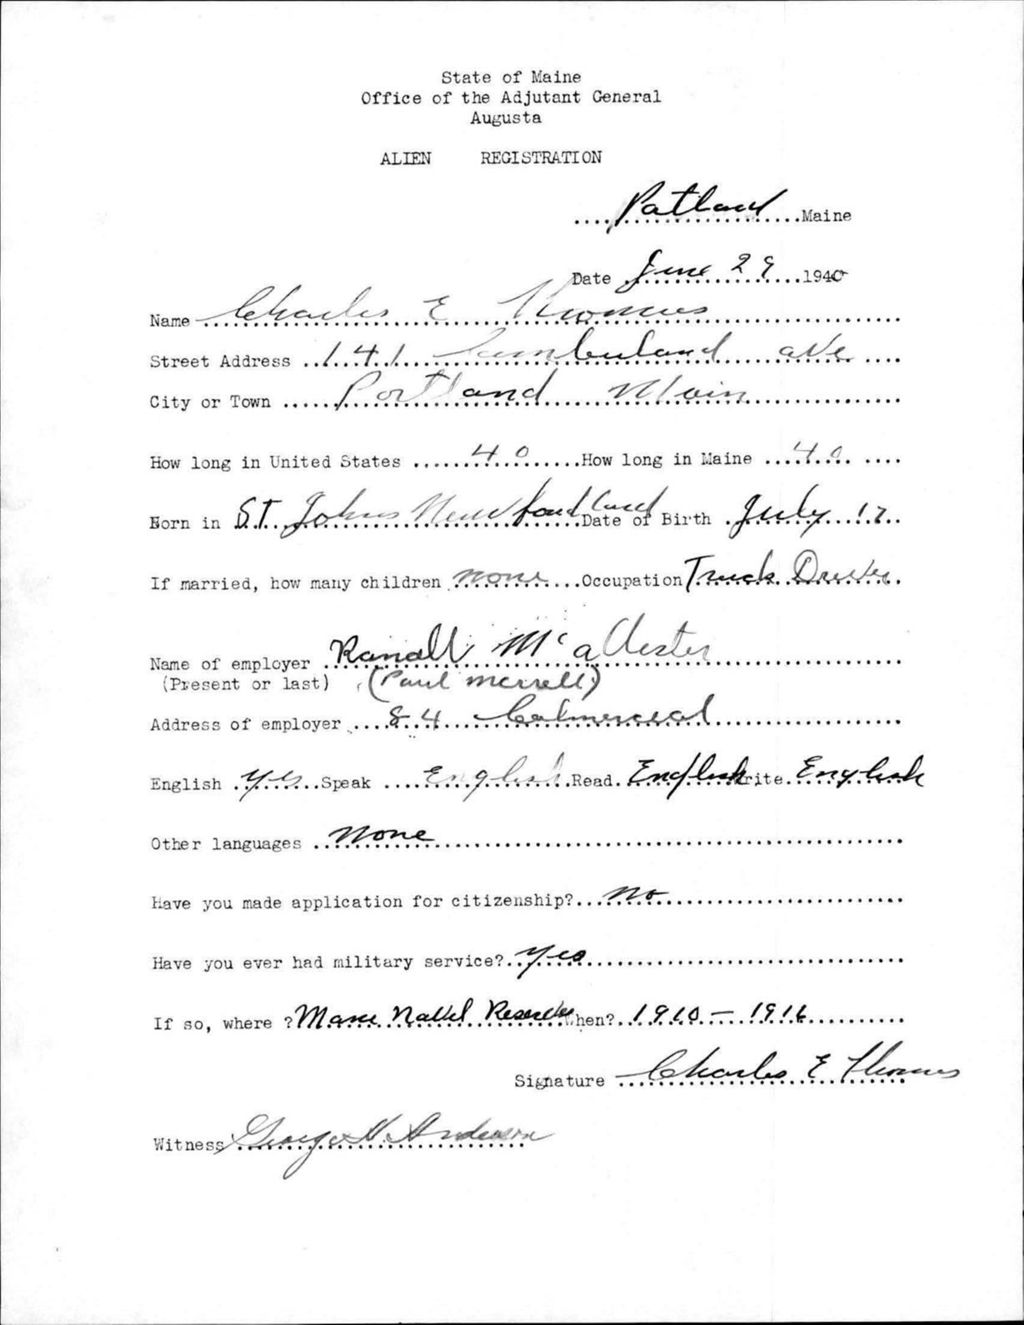 State of Maine
Office of the Adjutant General
Augusta
ALIEN REGISTRATION
Portland Maine
Date June 29 1940
Name Charles E Thomas
Street Address 141 Cumberland ave
City or Town Portland Main
How long in United States 40 How long in Maine 40
Born in ST. Johns Newfoundland Date of Birth July 17
If married, how many children none Occupation Truck Driver
Name of employer Randall McAllester
(Present or last) (Paul Merrell)
Address of employer 84 Commercial
English yes Speak English Read English Write English
Other languages None
Have you made application for citizenship? No
Have you ever had military service? Yes
If so, where? Naval Reserve When? 1910 - 1916
Signature Charles E Thomas
Witness George H Anderson